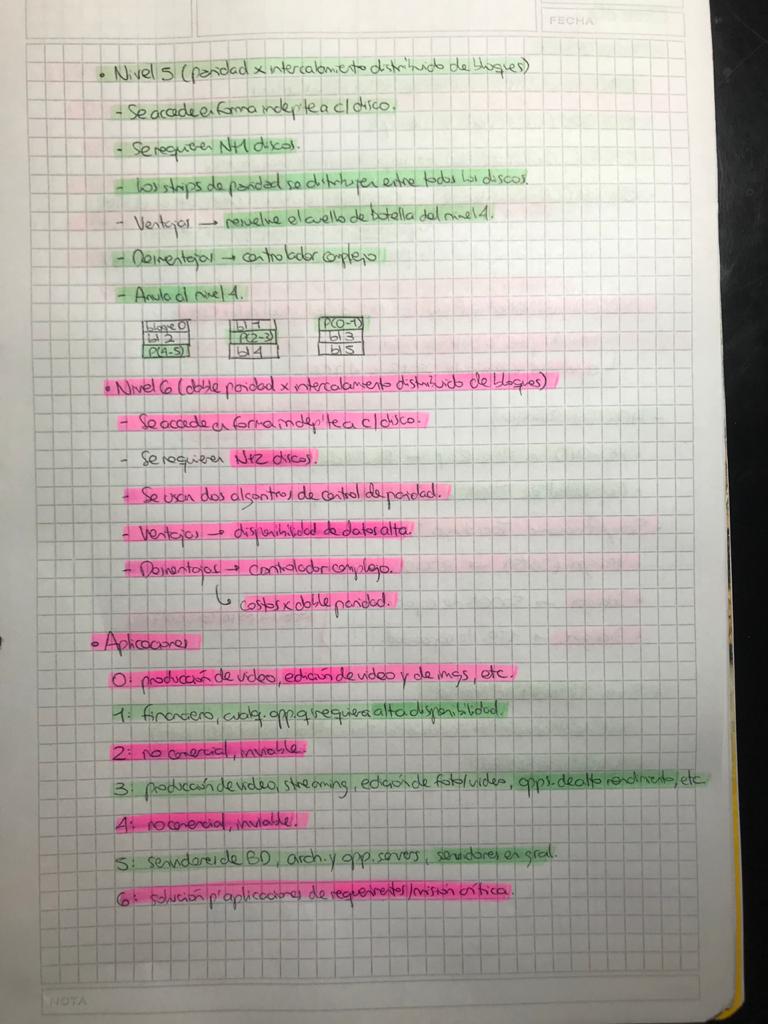 FECHA
• Nivel 5 (paridad x intercalamiento distribuido de bloques)
- Se accede en forma indep'te a c/ disco.
- Se requieren N+1 discos.
- Los strips de paridad se distribuyen entre todos los discos.
- Ventajas → resuelve el cuello de botella del nivel 4.
- Desventajas → controlador complejo
- Anula al nivel 4.
bloque 0 bl 1 P(0-1)
bl 2 P(2-3) bl 3
P(4-5) bl 4 bl 5
• Nivel 6 (doble paridad x intercalamiento distribuido de bloques)
- Se accede en forma indep'te a c/ disco.
- Se requieren N+2 discos.
- Se usan dos algoritmos de control de paridad.
- Ventajas → disponibilidad de datos alta.
- Desventajas → controlador complejo.
↳ costos x doble paridad.
• Aplicaciones
0: producción de video, edición de video y de imgs, etc.
1: financiero, cualq. app. q' requiera alta disponibilidad.
2: no comercial, inviable.
3: producción de video, streaming, edición de foto/video, apps. de alto rendimiento, etc
4: no comercial, inviable.
5: servidores de BD, arch. y app. servers, servidores en gral.
6: solución p' aplicaciones de /misión crítica.
NOTA